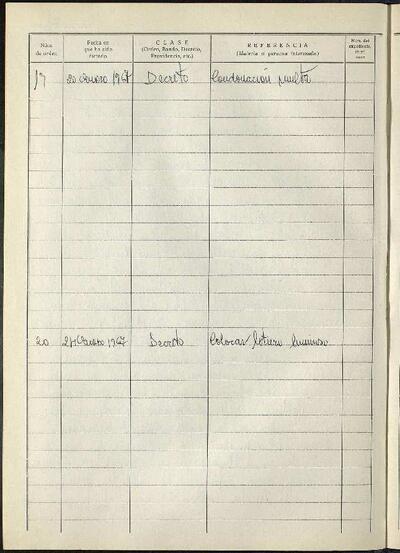 Núm. de orden
Fecha en que ha sido dictado
CLASE
(Orden, Bando, Decreto, Providencia, etc.)
REFERENCIA
(Materia o persona interesada)
Núm. del expediente
19 20 Enero 1967 Decreto Condonacion multa
20 21 Enero 1967 Decreto Colocar letrero luminoso